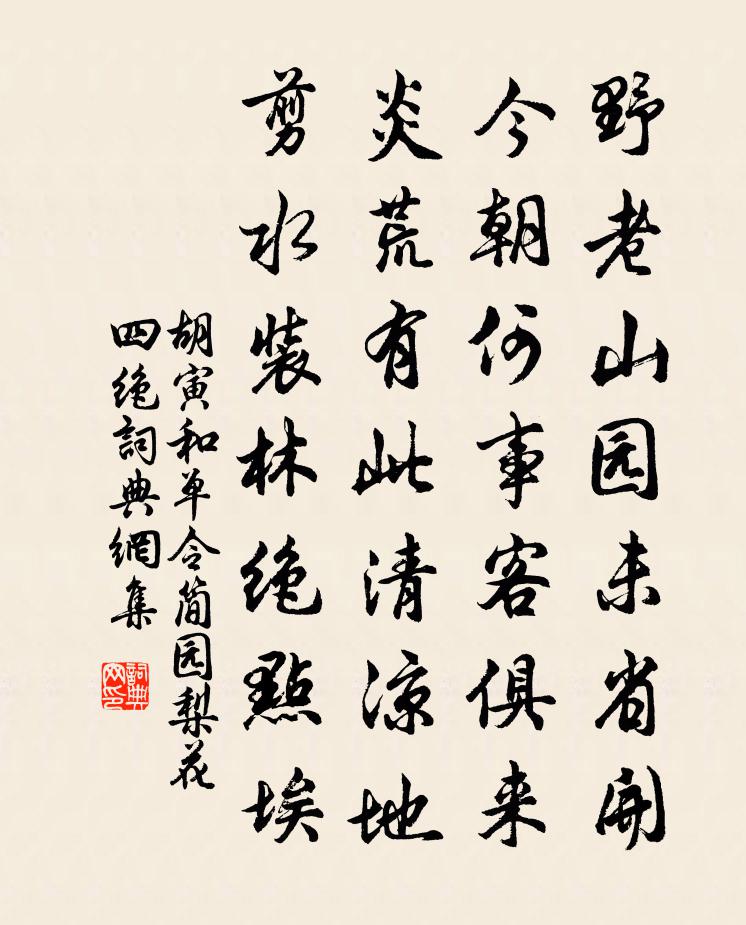 野老山园未省開
今朝何事客俱来
炎荒有此清凉地
剪水装林绝點埃
胡寅和单令简园梨花
四绝詞典網集
詞典网印